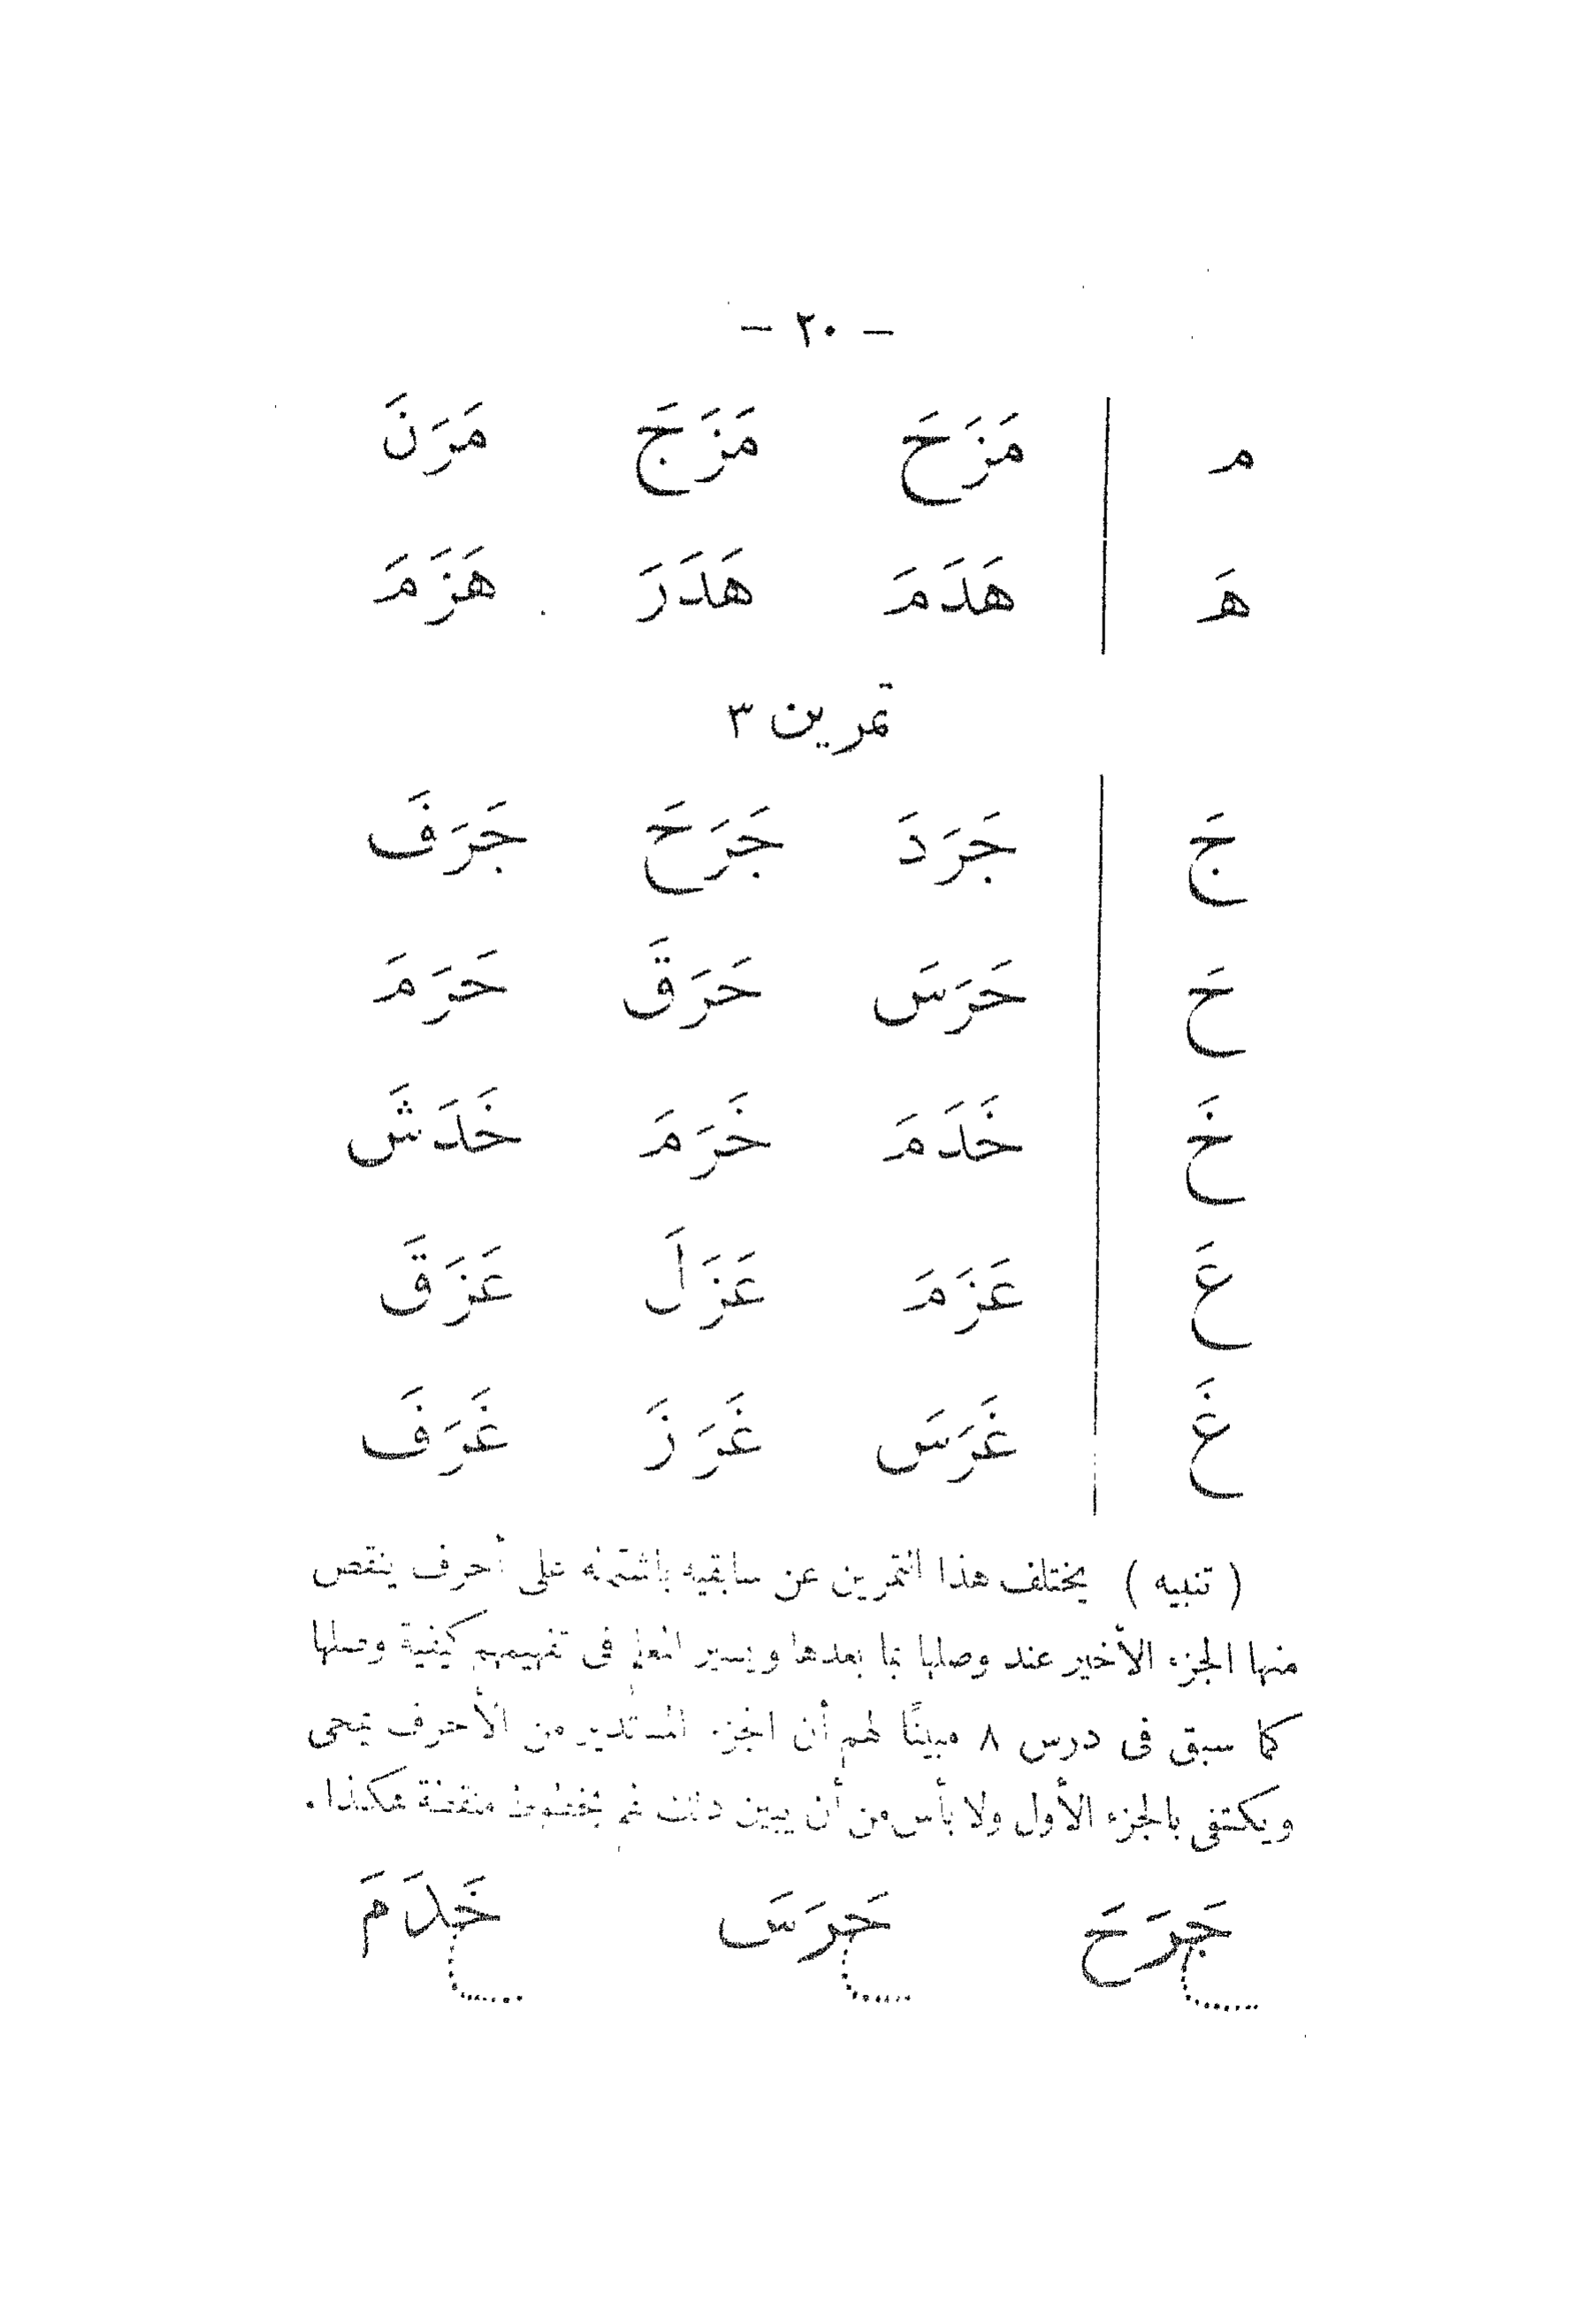 — ٢٠ —
م مَزَحَ مَزَجَ مَرَنَ
هَ هَدَمَ هَدَرَ هَزَمَ
تمرين ٣
جَ جَرَدَ جَرَحَ جَرَفَ
حَ حَرَسَ حَرَقَ حَرَمَ
خَ خَدَمَ خَرَمَ خَدَشَ
عَ عَزَمَ عَزَلَ عَزَقَ
غَ غَرَسَ غَرَزَ غَرَفَ
( تنبيه ) يختلف هذا التمرين عن سابقيه باشتماله على أحرف ينقص
منها الجزء الأخير عند وصلها بما بعدها ويسير المعلم فى تفهيمهم كيفية وصلها
كما سبق فى درس ٨ مبينًا لهم أن الجزء المستدير من الأحرف يمحى
ويكتفى بالجزء الأول ولا بأس من أن يبين ذلك لهم بخطوط منقطة هكذا .
جَرَحَ حَرَسَ خَدَمَ